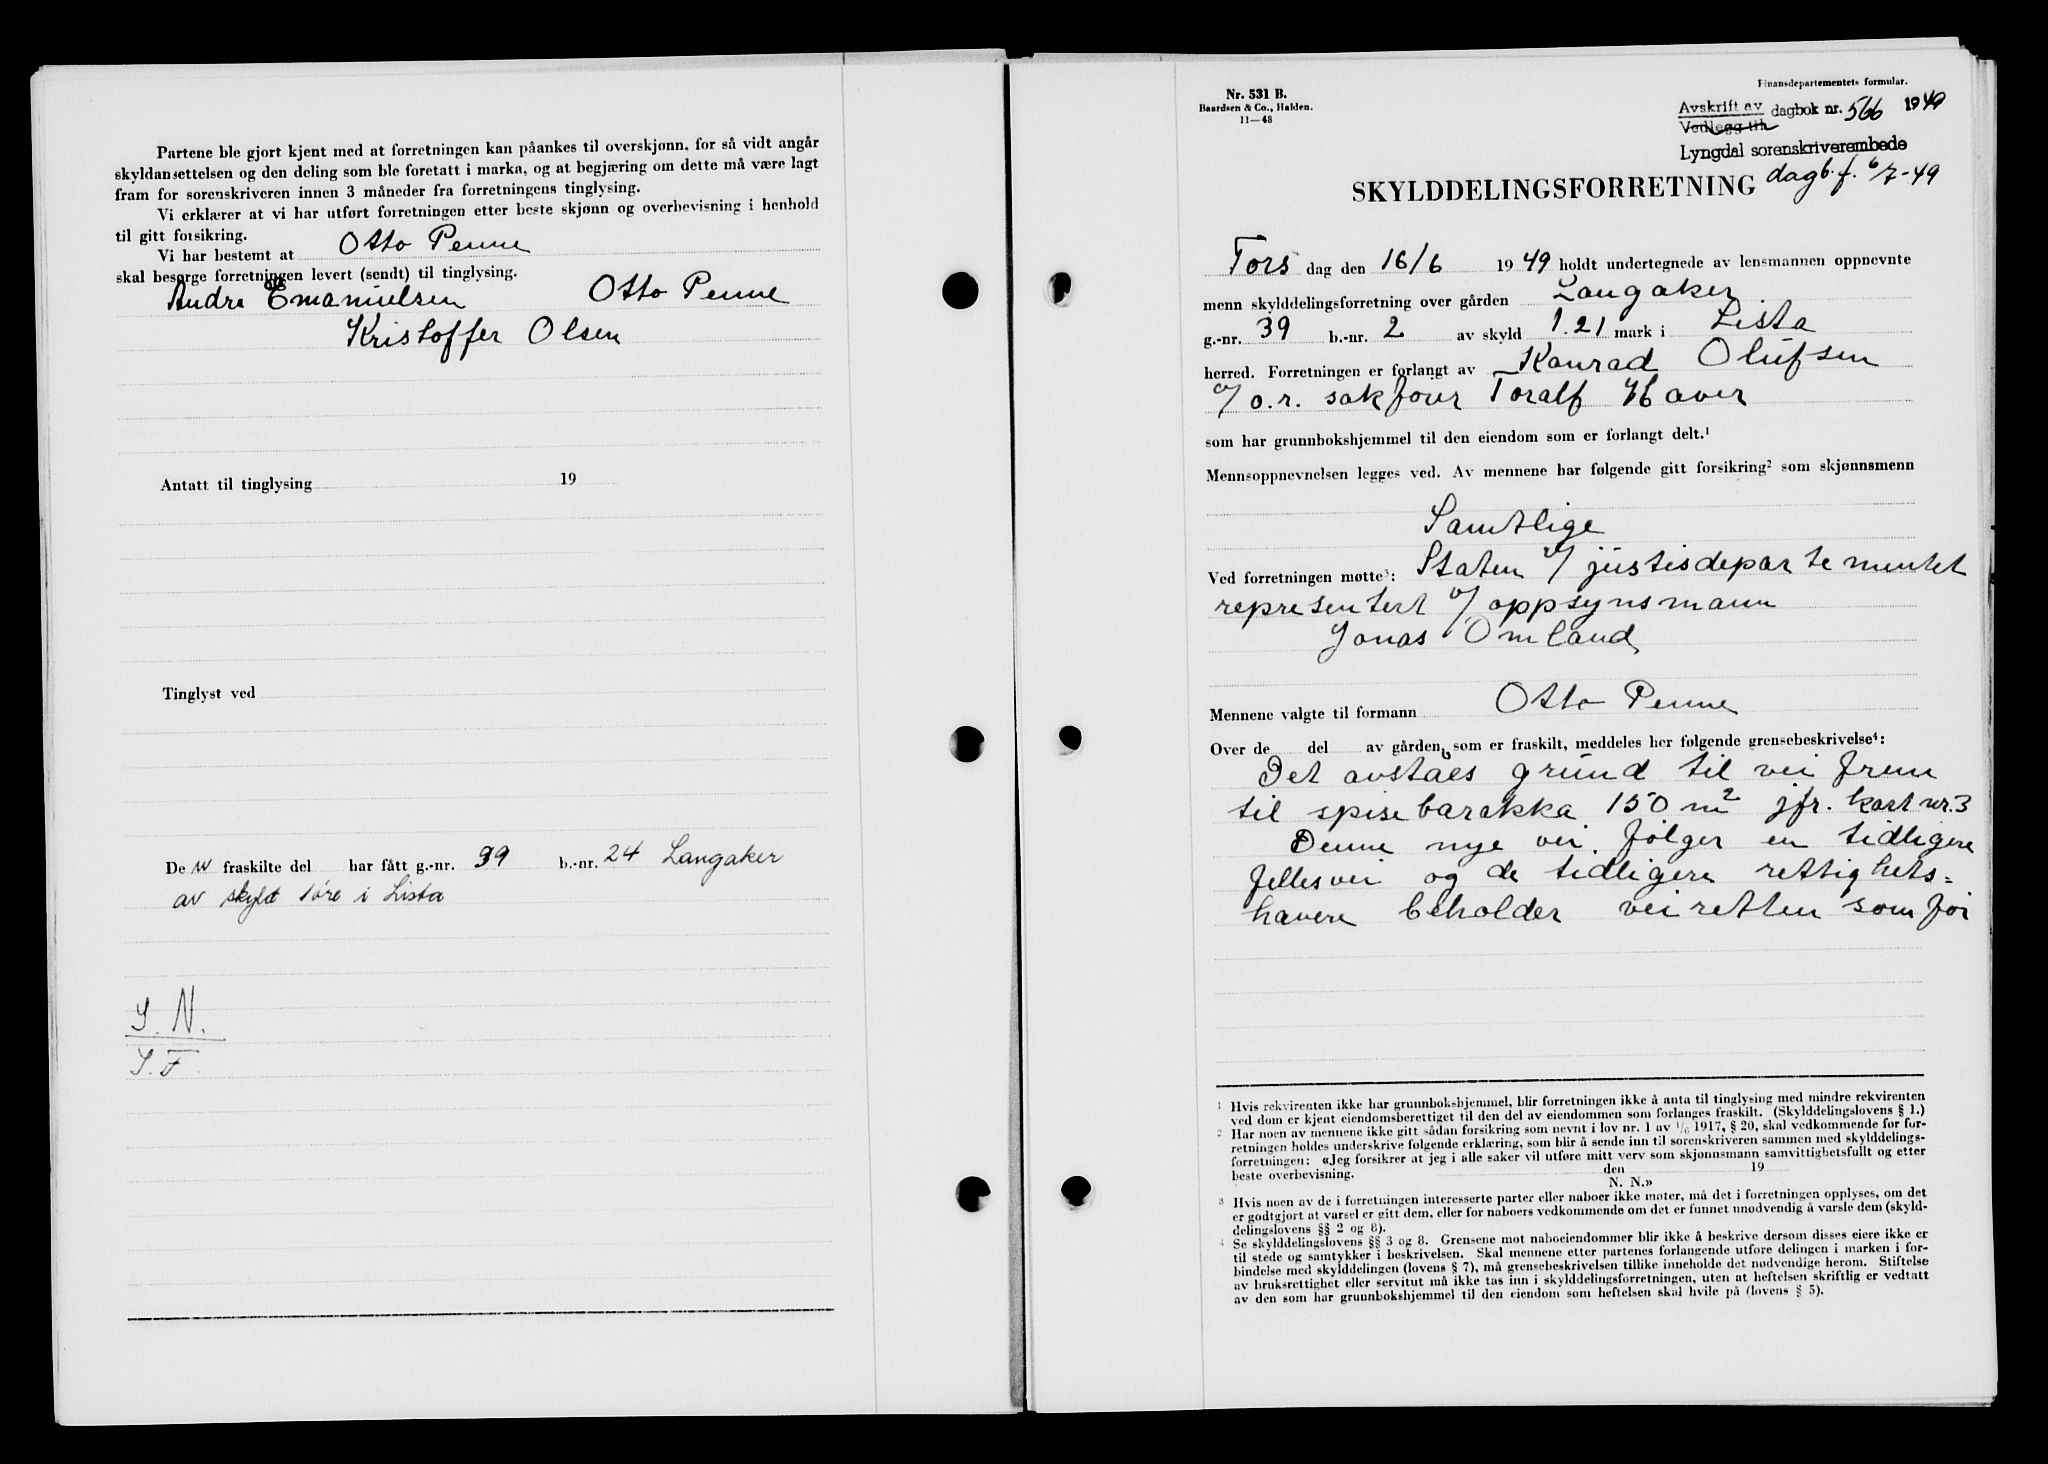 Partene ble gjort kjent med at forretningen kan påankes til overskjønn, for så vidt angår
skyldansettelsen og den deling som ble foretatt i marka, og at begjæring om dette må være lagt
fram for sorenskriveren innen 3 måneder fra forretningens tinglysing.
Vi erklærer at vi har utført forretningen etter beste skjønn og overbevisning i henhold
til gitt forsikring.
Vi har bestemt at Otto Penne
skal besørge forretningen levert (sendt) til tinglysing.
Andre Emanuelsen Otto Penne
Kristoffer Olsen
Antatt til tinglysing 19
Tinglyst ved
De n fraskilte del har fått g.-nr. 39 b.-nr. 24 Langaker
av skyld 1 øre i Lista
S. N.
S. F.
Nr. 531 B.
Baardsen & Co., Halden.
11—48
Finansdepartementets formular.
Avskrift av dagbok nr. 566 1949
Vedlegg til
Lyngdal sorenskriverembede
dagb. f. 6/7-49
SKYLDDELINGSFORRETNING
Tors dag den 16/6 1949 holdt undertegnede av lensmannen oppnevnte
menn skylddelingsforretning over gården Langaker
g.-nr. 39 b.-nr. 2 av skyld 1.21 mark i Lista
herred. Forretningen er forlangt av Konrad Olufsen
v/ o.r. sakfører Toralf Haver
som har grunnbokshjemmel til den eiendom som er forlangt delt.¹
Mennsoppnevnelsen legges ved. Av mennene har følgende gitt forsikring² som skjønnsmenn
Samtlige
Ved forretningen møtte³: Staten v/ justisdepartementet
representert v/ oppsynsmann
Jonas Omland
Mennene valgte til formann Otto Penne
Over de del av gården, som er fraskilt, meddeles her følgende grensebeskrivelse⁴:
Det avståes grund til vei frem
til spisebarakka 150 m² jfr. kart nr. 3
Denne nye vei følger en tidligere
fellesvei og de tidligere rettighets=
havere beholder veiretten som før
¹ Hvis rekvirenten ikke har grunnbokshjemmel, blir forretningen ikke å anta til tinglysing med mindre rekvirenten
ved dom er kjent eiendomsberettiget til den del av eiendommen som forlanges fraskilt. (Skylddelingslovens § 1.)
² Har noen av mennene ikke gitt sådan forsikring som nevnt i lov nr. 1 av ¹/₆ 1917, § 20, skal vedkommende før for-
retningen holdes underskrive følgende erklæring, som blir å sende inn til sorenskriveren sammen med skylddelings-
forretningen: «Jeg forsikrer at jeg i alle saker vil utføre mitt verv som skjønnsmann samvittighetsfullt og etter
beste overbevisning. den 19
N. N.»
³ Hvis noen av de i forretningen interesserte parter eller naboer ikke møter, må det i forretningen opplyses, om det
er godtgjort at varsel er gitt dem, eller for naboers vedkommende om det er funnet unødvendig å varsle dem (skyld-
delingslovens §§ 2 og 8).
⁴ Se skylddelingslovens §§ 3 og 8. Grensene mot naboeiendommer blir ikke å beskrive dersom disses eiere ikke er
til stede og samtykker i beskrivelsen. Skal mennene etter partenes forlangende utføre delingen i marken i for-
bindelse med skylddelingen (lovens § 7), må grensebeskrivelsen tillike inneholde det nødvendige herom. Stiftelse
av bruksrettighet eller servitut må ikke tas inn i skylddelingsforretningen, uten at heftelsen skriftlig er vedtatt
av den som har grunnbokshjemmel til den eiendom som heftelsen skal hvile på (lovens § 5).